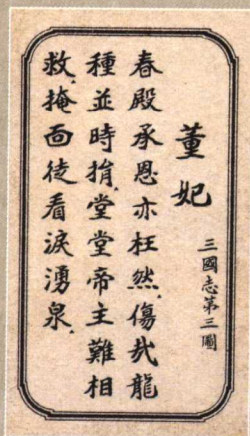 董妃
三國志第三圖
春殿承恩亦枉然.傷哉龍
種並時捐.堂堂帝主難相
救.掩面徒看淚湧泉.